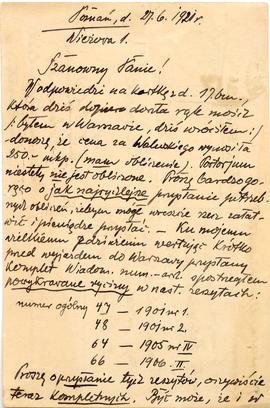 Poznań, d. 27.6.1921 r.
Wieżowa 1.
Szanowny Panie!
W odpowiedzi na kartkę z d. 17. bm.,
która dziś dopiero doszła rąk moich
/: byłem w Warszawie, dziś wróciłem :/
donoszę, że cena za Walewskiego wynosiła
250.- mkp. (mam obliczenie). Portorjum
niestety nie jest obliczone. Proszę bardzo go-
rąco o jak najrychlejsze przysłanie potrzeb-
nych obliczeń, żebym mógł wreszcie rzecz załat-
wić i pieniądze przysłać. — Ku mojemu
wielkiemu zdziwieniu wertując krótko
przed wyjazdem do Warszawy przysłany
komplet Wiadom. num.-arch. spostrzegłem
powykrawane ryciny w nast. zeszytach:
numer ogólny 47 — 1901 nr 1.
48 — 1901 nr 2.
64 — 1905 nr IV
66 — 1906. II.
Proszę o przysłanie tych zeszytów, oczywiście
teraz kompletnych. Być może, że i w